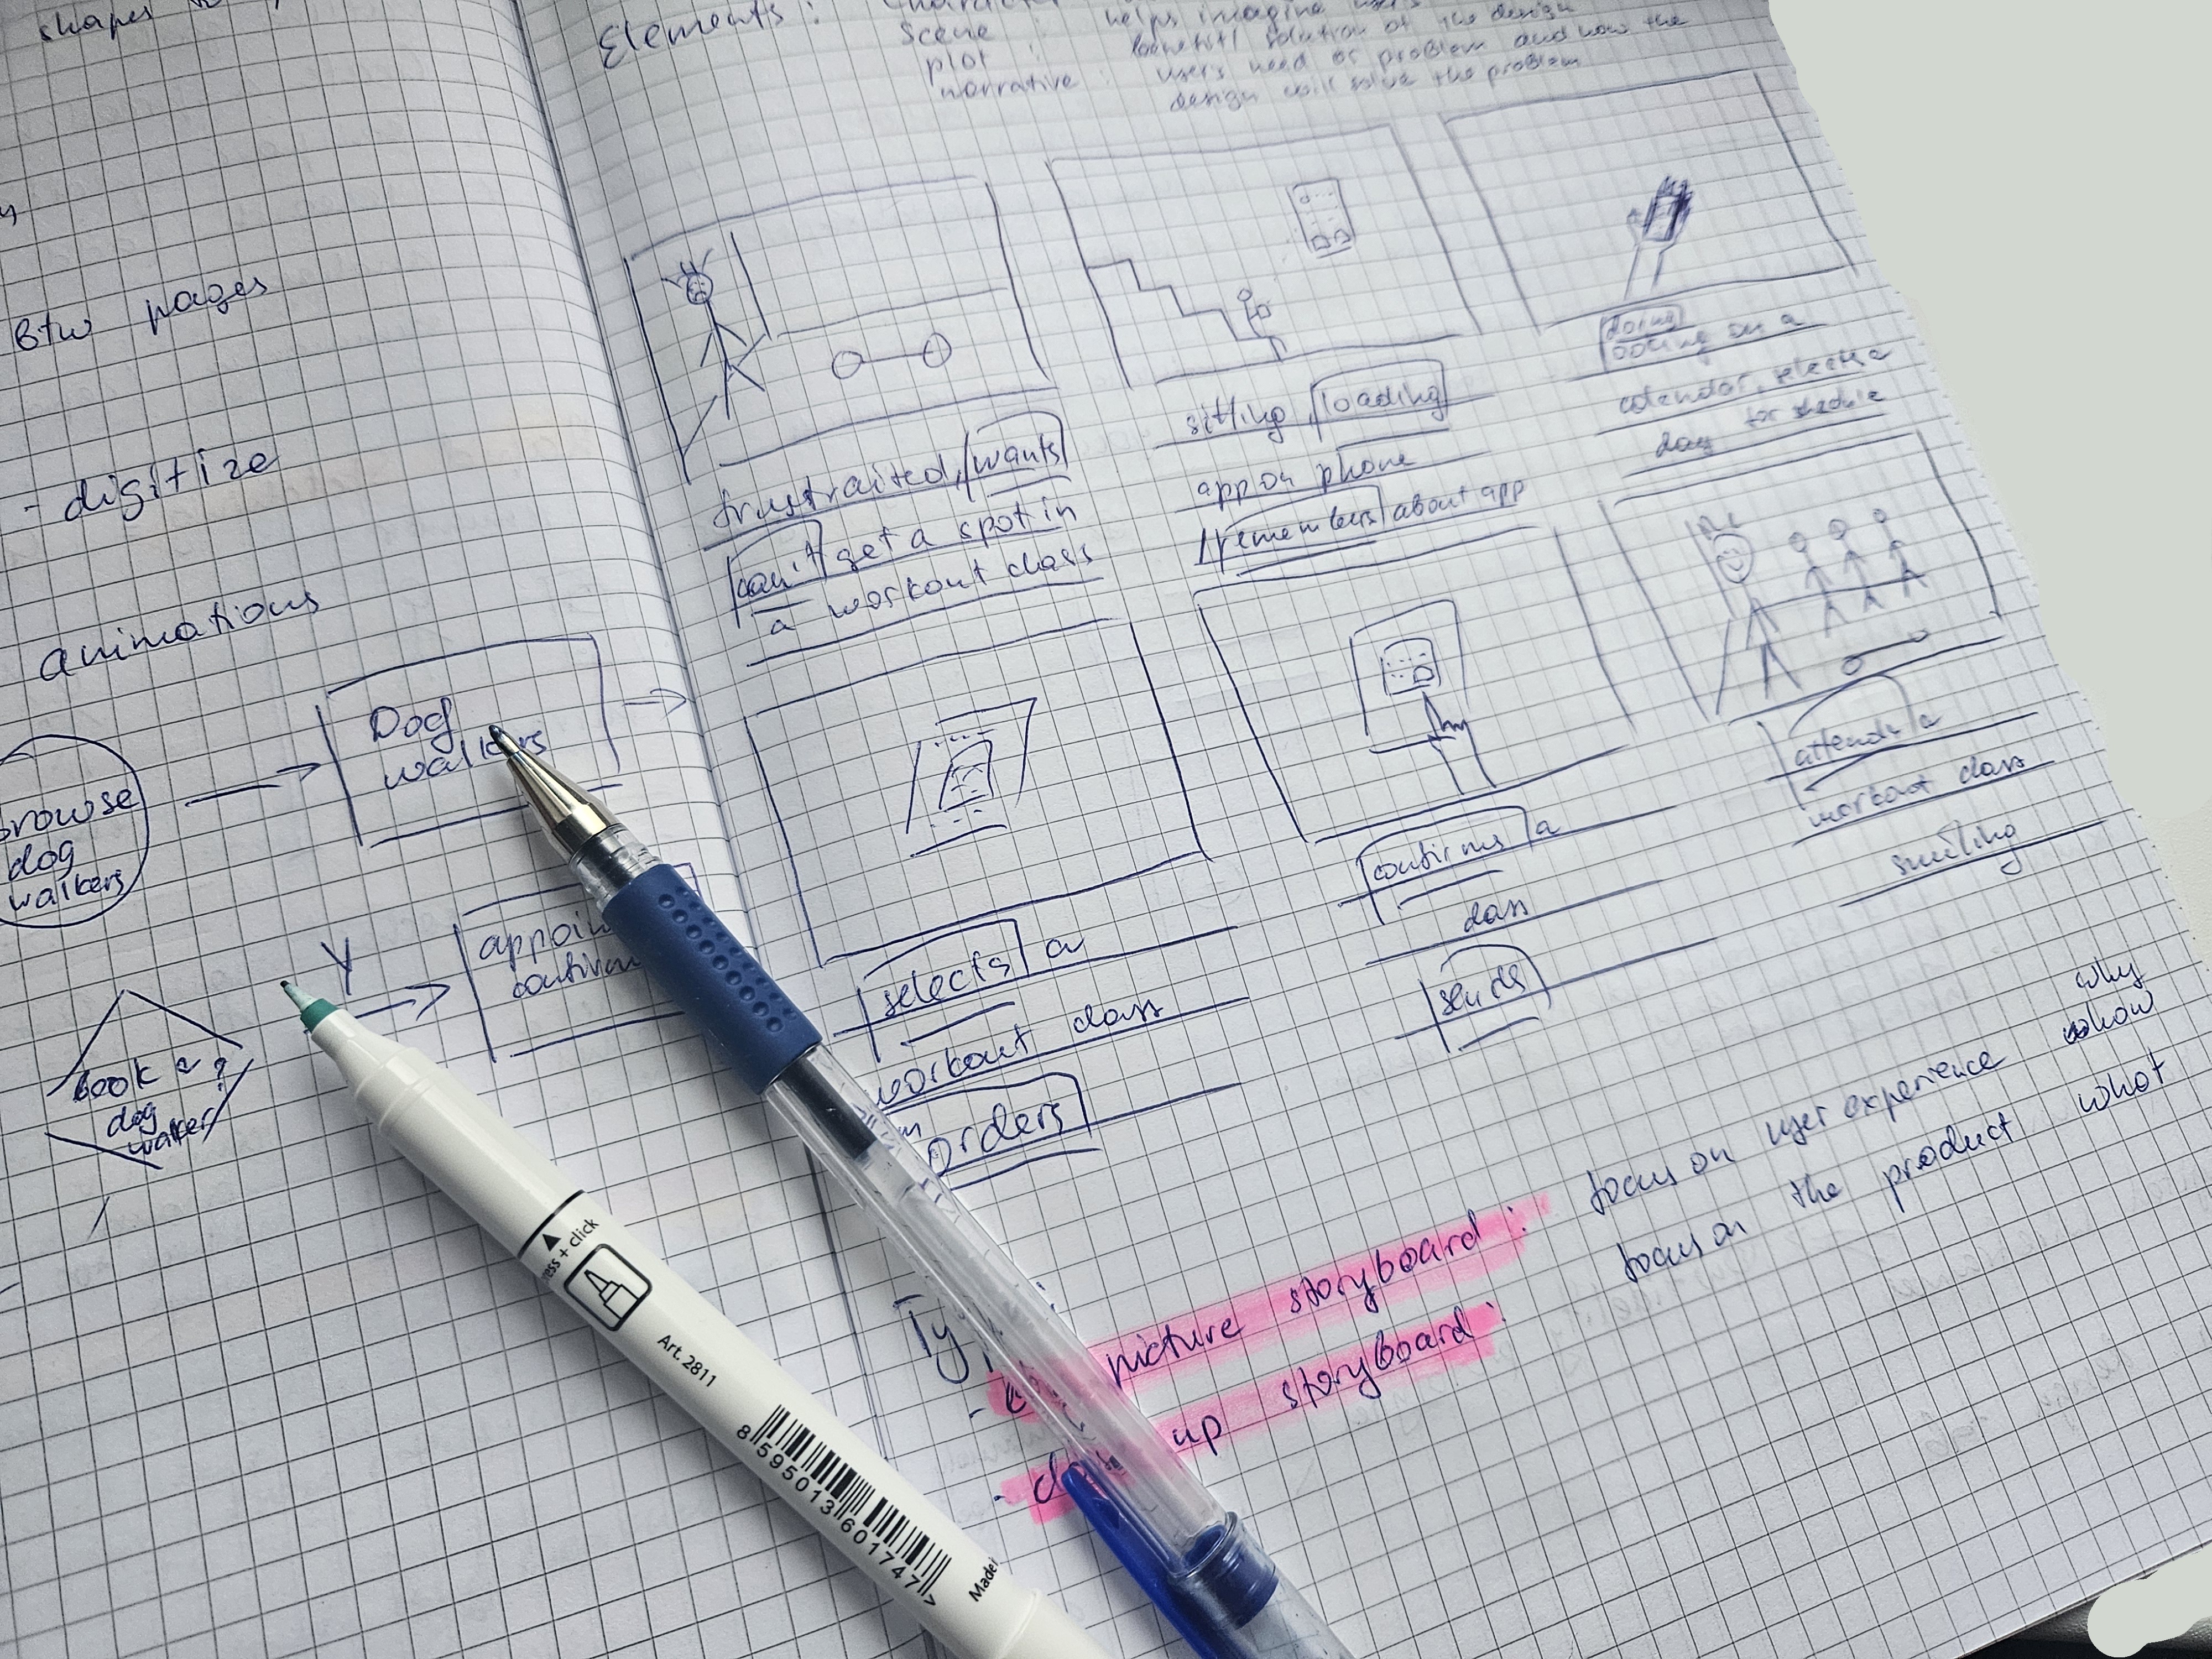 shapes
btw pages
- digitize
animations
Dog
walkers
browse
dog
walkers
Y
appoin
confirm
book a ?
dog
walker
Elements :
scene : helps imagine user's
plot : benefit/ solution of the design
narrative : user's need or problem and how the
design will solve the problem
frustraited, wants
can't get a spot in
a workout class
sitting, loading
app on phone
remembers about app
doing
calendar, selects a
day for shedule
selects a
workout class
orders
confirms a
class
sends
attends a
workout class
smiling
Ty
picture storyboard : focus on user experience why
how
- close up storyboard : focus on the product what
press + click
Art. 2811
8 595013 601747 >
Made i